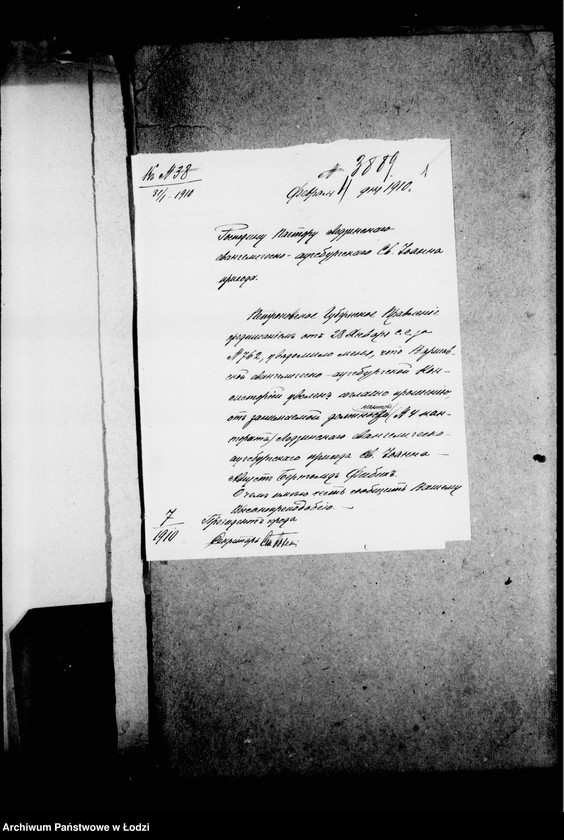 Къ № 38
31/I - 1910
№ 3889
1
Февраля 11 дня 1910.
Господину Пастору Лодзинскаго
евангелическо-аугсбургскаго Св. Іоанна
прихода.
Петроковское Губернское Правленіе
предписаніемъ отъ 28 Января с.г. за
№ 762, увѣдомило меня, что Варшав-
ской евангелическо-аугсбургской Кон-
систоріи уволенъ согласно прошенію,
отъ занимаемой должности / кан-
тора Лодзинскаго евангелическо-
аугсбургскаго прихода Св. Іоанна —
Августъ Бертольдъ Фибихъ.
О чемъ имѣю честь сообщить Вашему
Высокопреподобію. —
7
1910
Президентъ города
Секретарь
Archiwum Państwowe w Łodzi